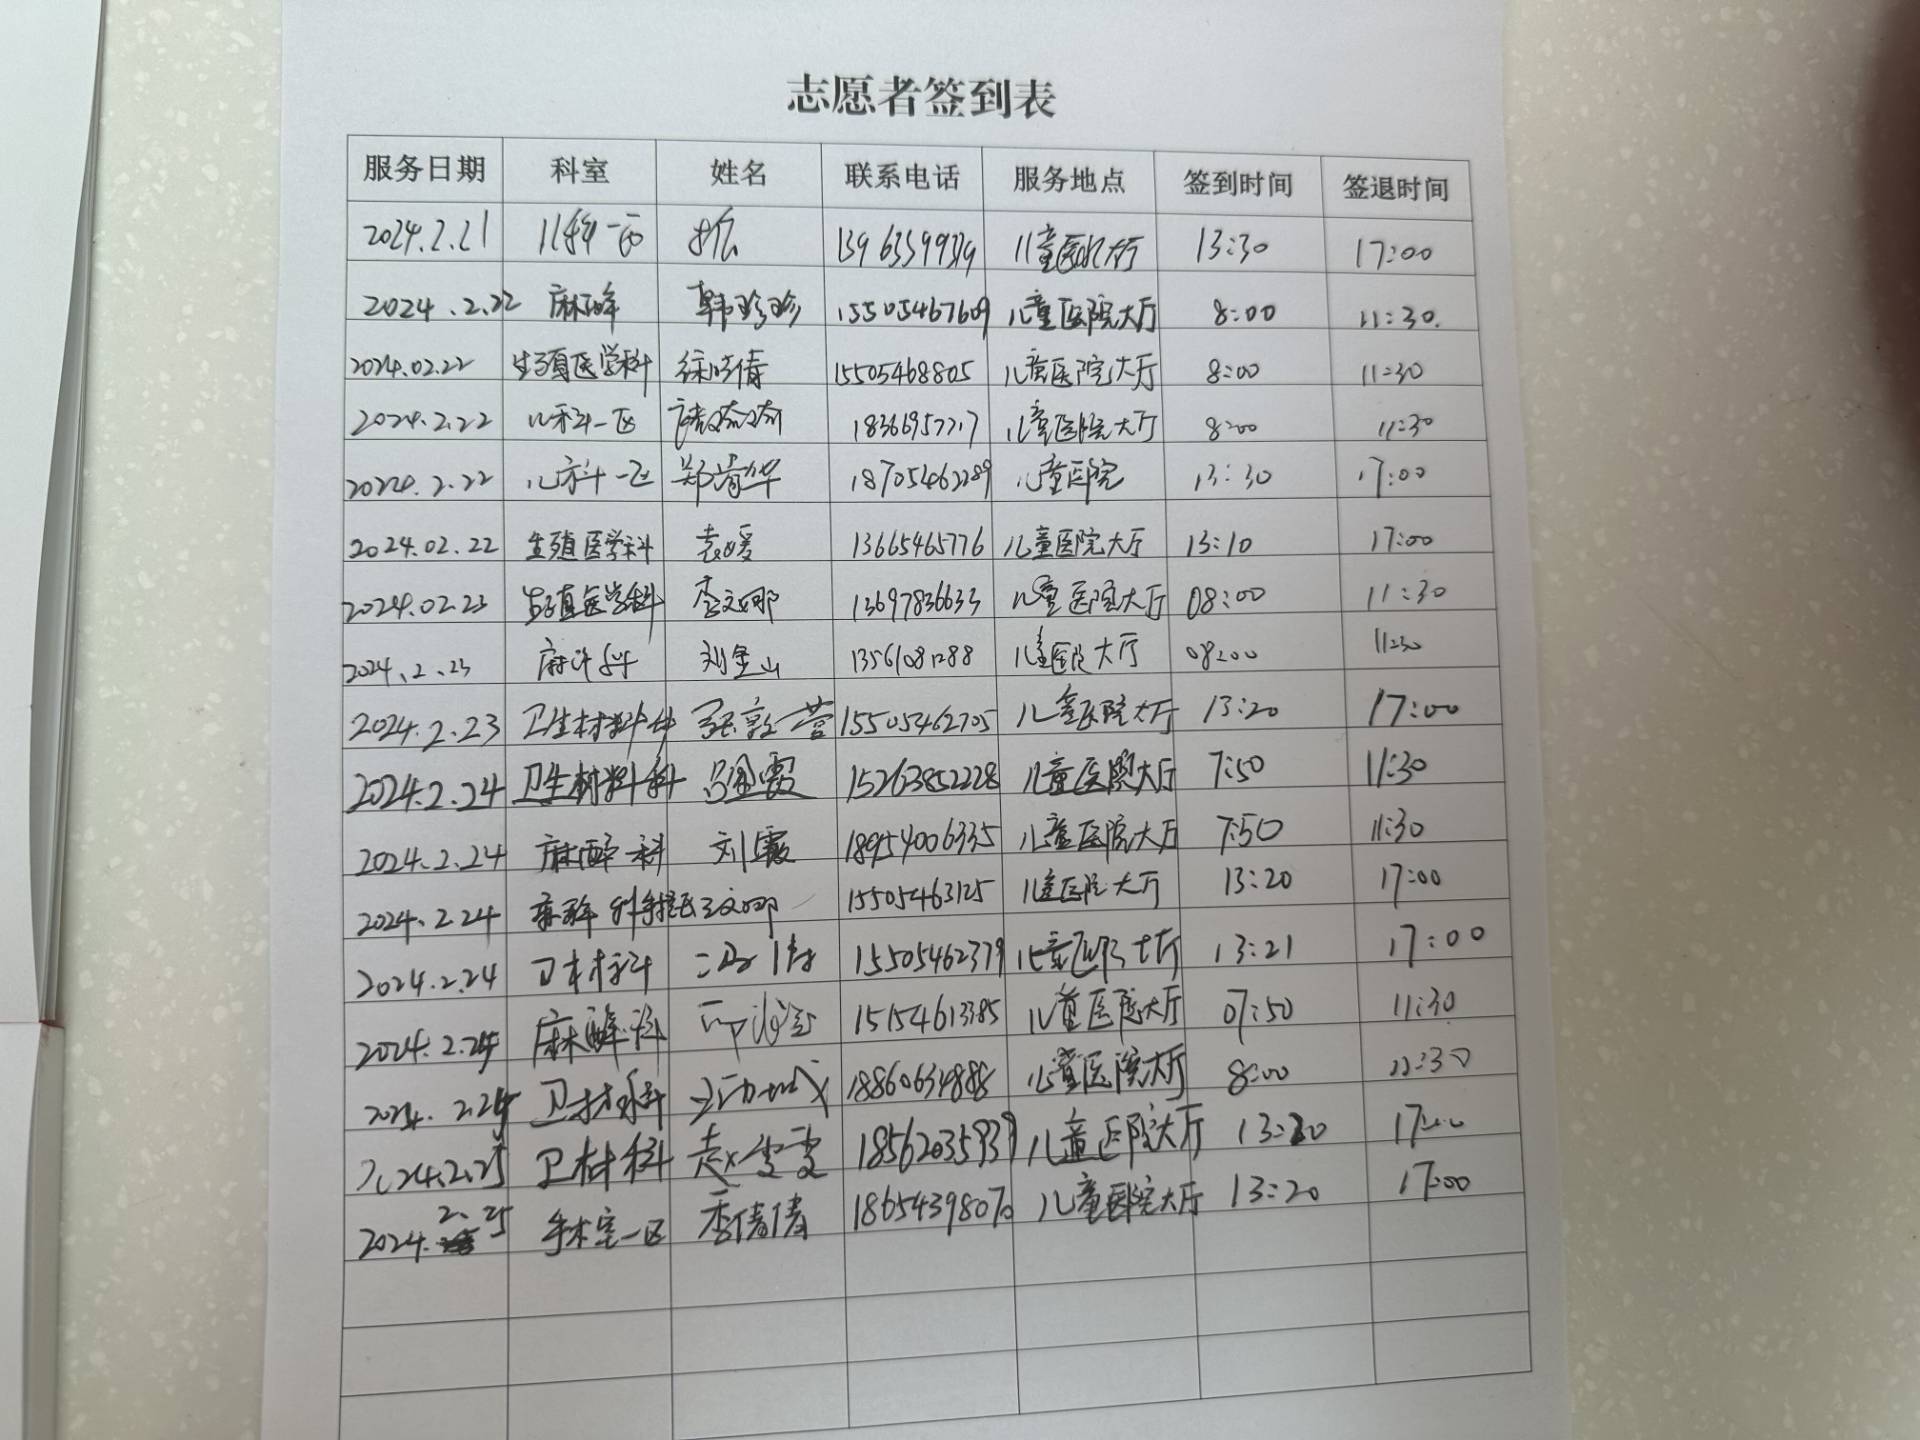 志愿者签到表
服务日期 科室 姓名 联系电话 服务地点 签到时间 签退时间
2024.2.21 儿科一 儿童医 大厅 13:30 17:00
2024.2.22 麻醉 韩珍珍 15505467609 儿童医院大厅 8:00 11:30.
2024.02.22 生殖医学科 徐晓倩 15505468805 儿童医院大厅 8:00 11:30
2024.2.22 儿科一区 儿童医院大厅 8:00 11:30
2024.2.22 儿科一区 18705462289 儿童医院 13:30 17:00
2024.02.22 生殖医学科 袁媛 13665465776 儿童医院大厅 13:10 17:00
2024.02.23 生殖医学科 李文娜 13697836633 儿童医院大厅 08:00 11:30
2024.2.23 刘金山 13561081288 儿童医院大厅 08:00 11:30
2024.2.23 卫生材料科 张敦营 15505462705 儿童医院大厅 13:20 17:00
2024.2.24 卫生材料科 吕金霞 15263852228 儿童医院大厅 7:50 11:30
2024.2.24 麻醉科 刘霞 18954006335 儿童医院大厅 7:50 11:30
2024.2.24 麻醉科 王文娜 15505463125 儿童医院大厅 13:20 17:00
2024.2.24 卫材科 15505462379 儿童医院大厅 13:21 17:00
麻醉科 15154613385 儿童医院大厅 07:50 11:30
卫材科 18860634888 儿童医院大厅 8:00 11:30
2024.2.25 卫材科 赵雪雯 18562035939 儿童医院大厅 13:20 17:00
2024.2.25 手术室一区 李倩倩 18654398070 儿童医院大厅 13:20 17:00